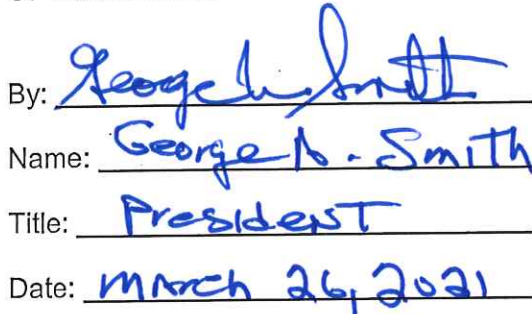 By: George Smith
Name: George A. Smith
Title: President
Date: March 26, 2021